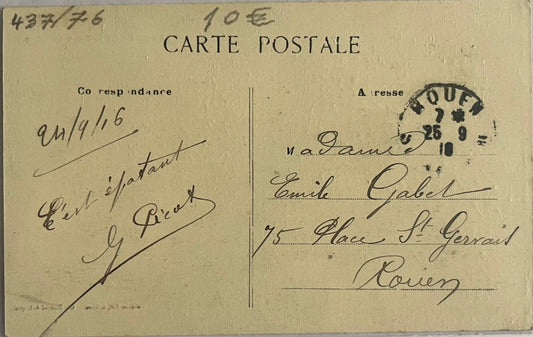 437/76
10€
CARTE POSTALE
Co respondance
A resse
24/9/16
C'est épatant
G Picot
ROUEN
7 *
25 9
16
Madame
Emile Gabet
75 Place St Gervais
Rouen